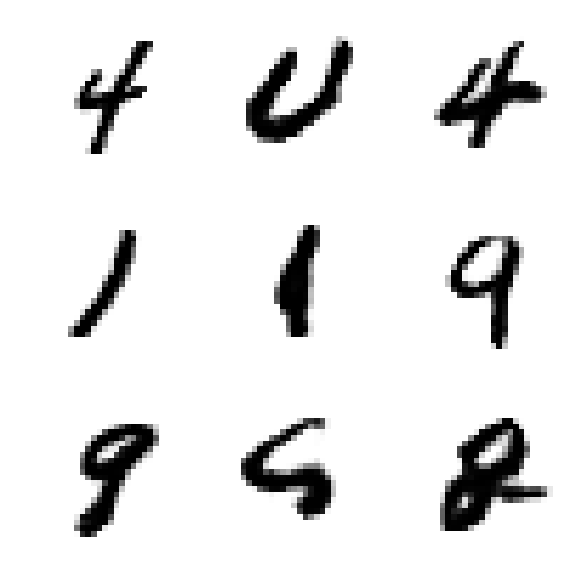 4 0 4
1 1 9
9 5 8